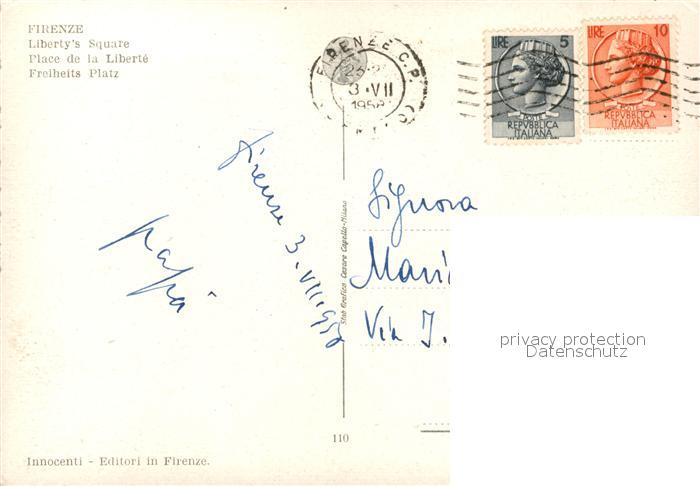 FIRENZE
Liberty's Square
Place de la Liberté
Freiheits Platz
FIRENZE C.P.
3·VII
LIRE 5
POSTE
REPVBBLICA
ITALIANA
LIRE 10
POSTE
REPVBBLICA
ITALIANA
Firenze 3.VII.958
papà
Stab Grafico Cesare Capello-Milano
Signora
Mari
Via I.
privacy protection
Datenschutz
110
Innocenti - Editori in Firenze.